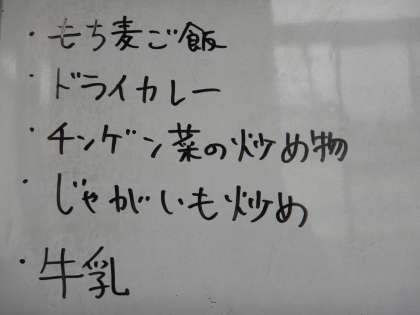 ・もち麦ご飯
・ドライカレー
・チンゲン菜の炒め物
・じゃがいも炒め
・牛乳